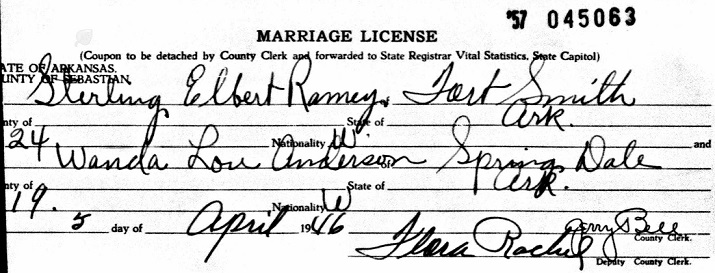 '57 045063
MARRIAGE LICENSE
(Coupon to be detached by County Clerk and forwarded to State Registrar Vital Statistics, State Capitol)
ATE OF ARKANSAS,
UNTY OF SEBASTIAN,
Sterling Elbert Ramey of Fort Smith
nty of State of Ark.
24 Nationality W. and
Wanda Lou Anderson of Spring Dale
nty of State of Ark.
19. Nationality W
5 day of April 1946 Gerry Bell
County Clerk.
Flora
Deputy County Clerk.